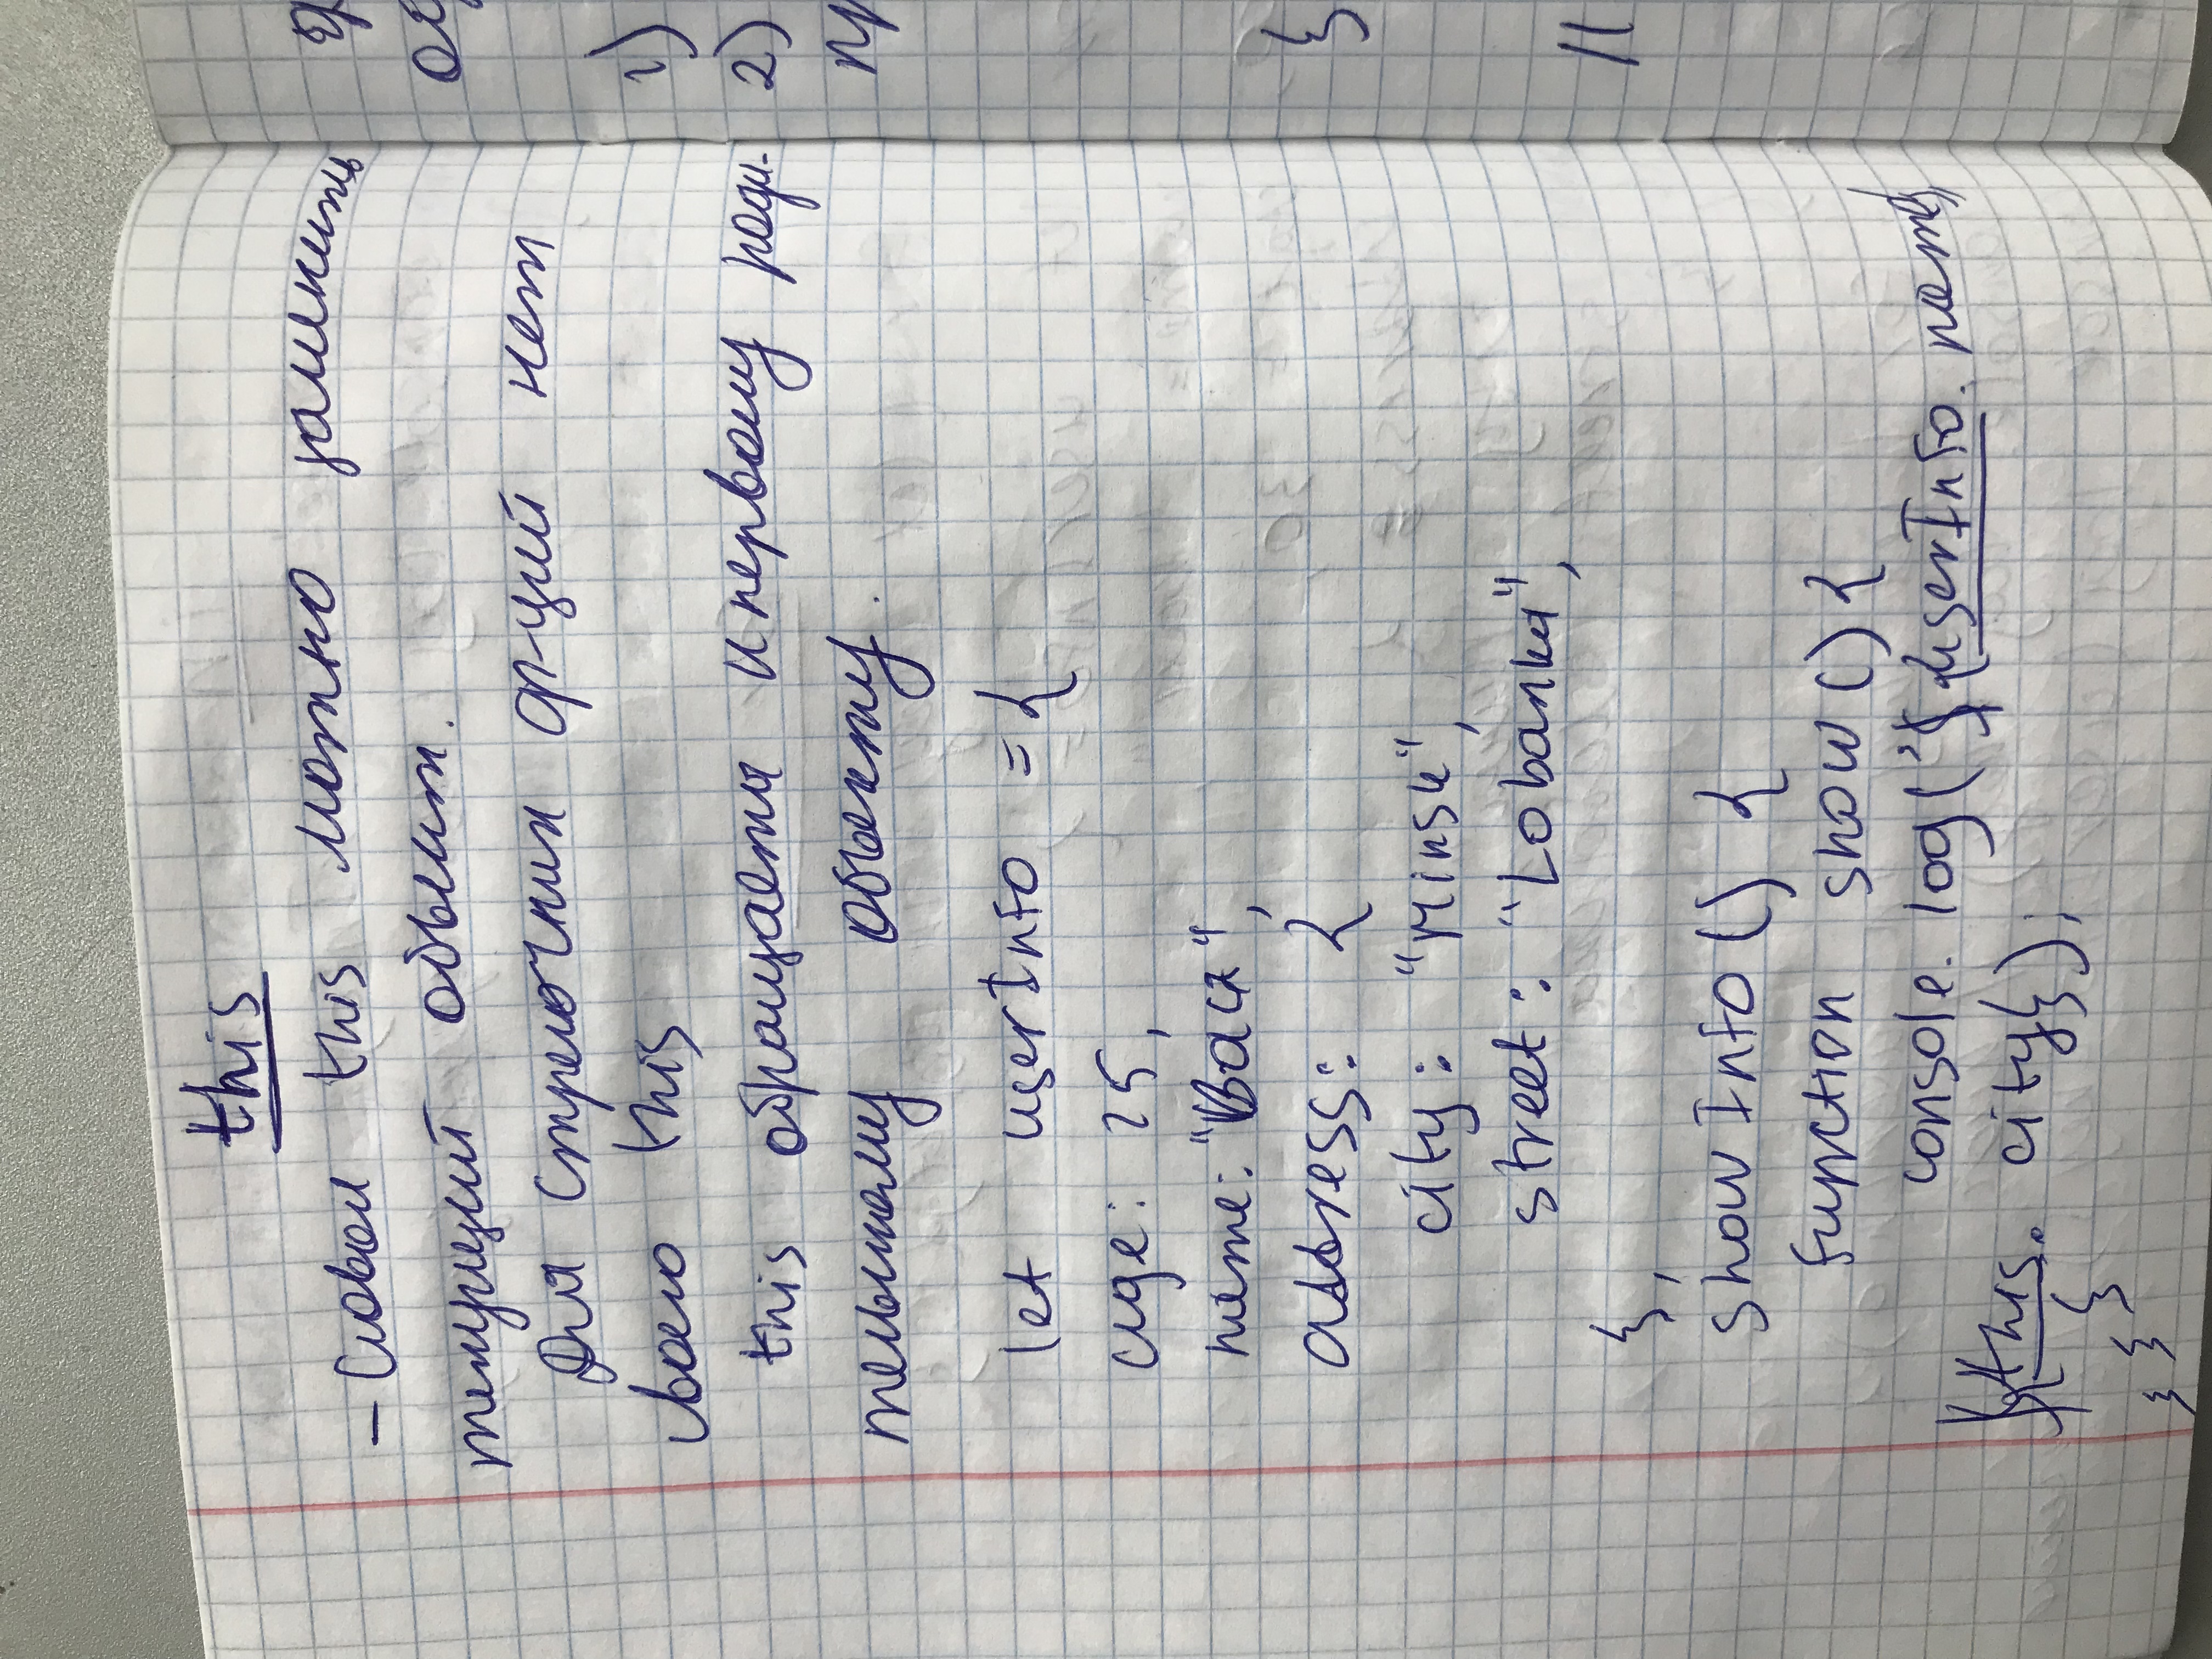 this
- Словом this можно заменить
текущий объект.
Для стрелочних ф-ций нет
своего this
this обращается к первому роди-
тельскому объекту.
let userInfo = {
age: 25,
name: "Вася",
address: {
city: "Minsk",
street: "Lobanka",
},
showInfo () {
function show () {
console. log (`${userInfo. name},
${this. city}`);
}
}
}
1)
2)
пр
}
//